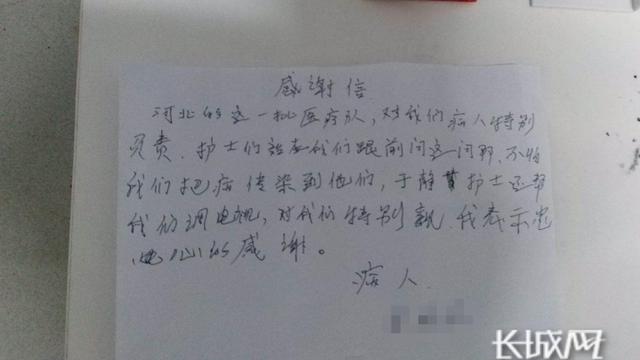 感谢信
河北的这一批医疗队，对我们病人特别
负责．护士们站在我们跟前问这问那，不怕
我们把病传染到他们，于静护士还帮
我们调电视，对我们特别亲．我表示忠
心的感谢。
病人
长城网